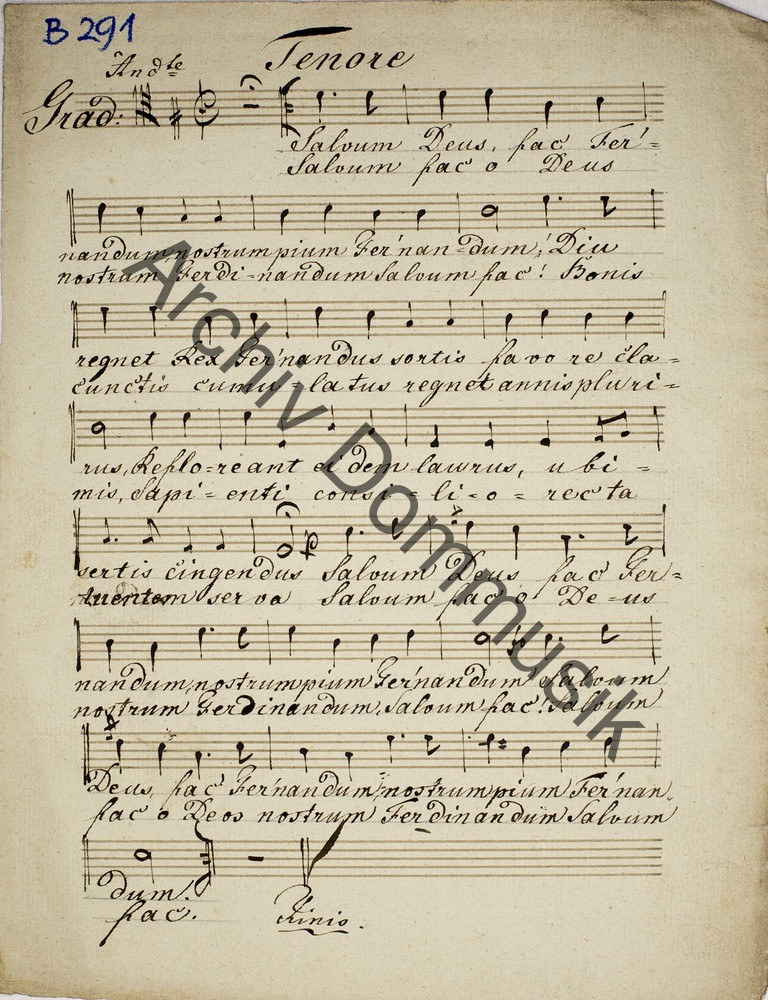 B 291
Tenore
Andte
Grad:
Salvum Deus, fac Fer'=
Salvum fac o Deus
nandum, nostrum pium Fer'nan=dum! Diu
nostrum Ferdi=nandum Salvum fac! Bonis
regnet Rex Fer'nandus sortis favore cla=
cunctis cumu=latus regnet annis pluri=
rus, Reflo=reant eidem laurus, ubi=
mis, Sapi=enti consi=li=o=recta
sertis cingendus Salvum Deus fac Fer=
serva Salvum fac o De=us
nandum, nostrum pium Fer'nandum Salvum
nostrum Ferdinandum, Salvum fac! Salvum
Deus, fac Fer'nandum, nostrum pium Fer'nan
fac o Deos nostrum Ferdinandum Salvum
dum!
fac.
Finis.
Archiv Dommusik